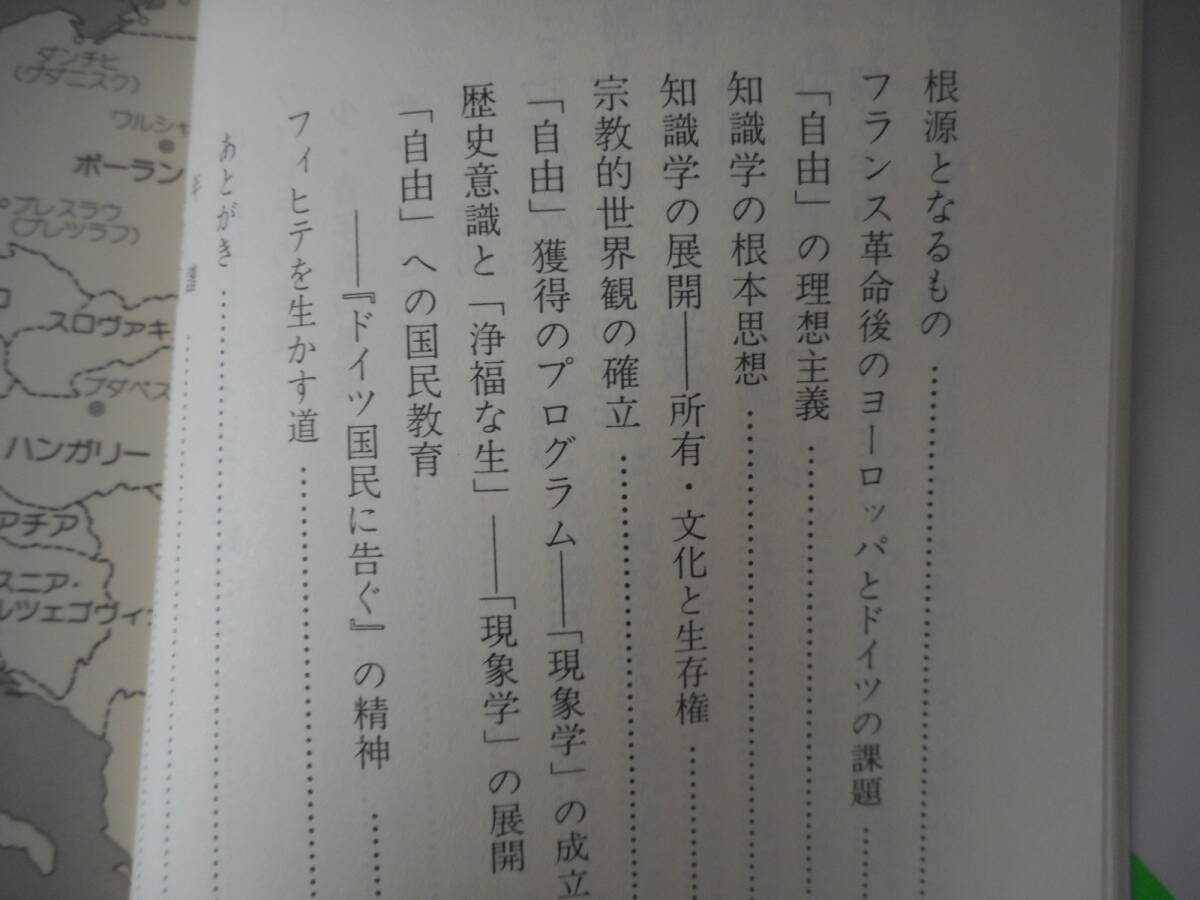 根源となるもの
フランス革命後のヨーロッパとドイツの課題
「自由」の理想主義
知識学の根本思想
知識学の展開――所有・文化と生存権
宗教的世界観の確立
「自由」獲得のプログラム――「現象学」の成立
歴史意識と「浄福な生」――「現象学」の展開
「自由」への国民教育
――『ドイツ国民に告ぐ』の精神
フィヒテを生かす道
あとがき
年譜
ダンチヒ
(グダニスク)
ワルシャ
ポーラン
ブレスラウ
(ブレツラフ)
スロヴァキ
ブダペス
ハンガリー
アチア
スニア・
ルツェゴヴィ